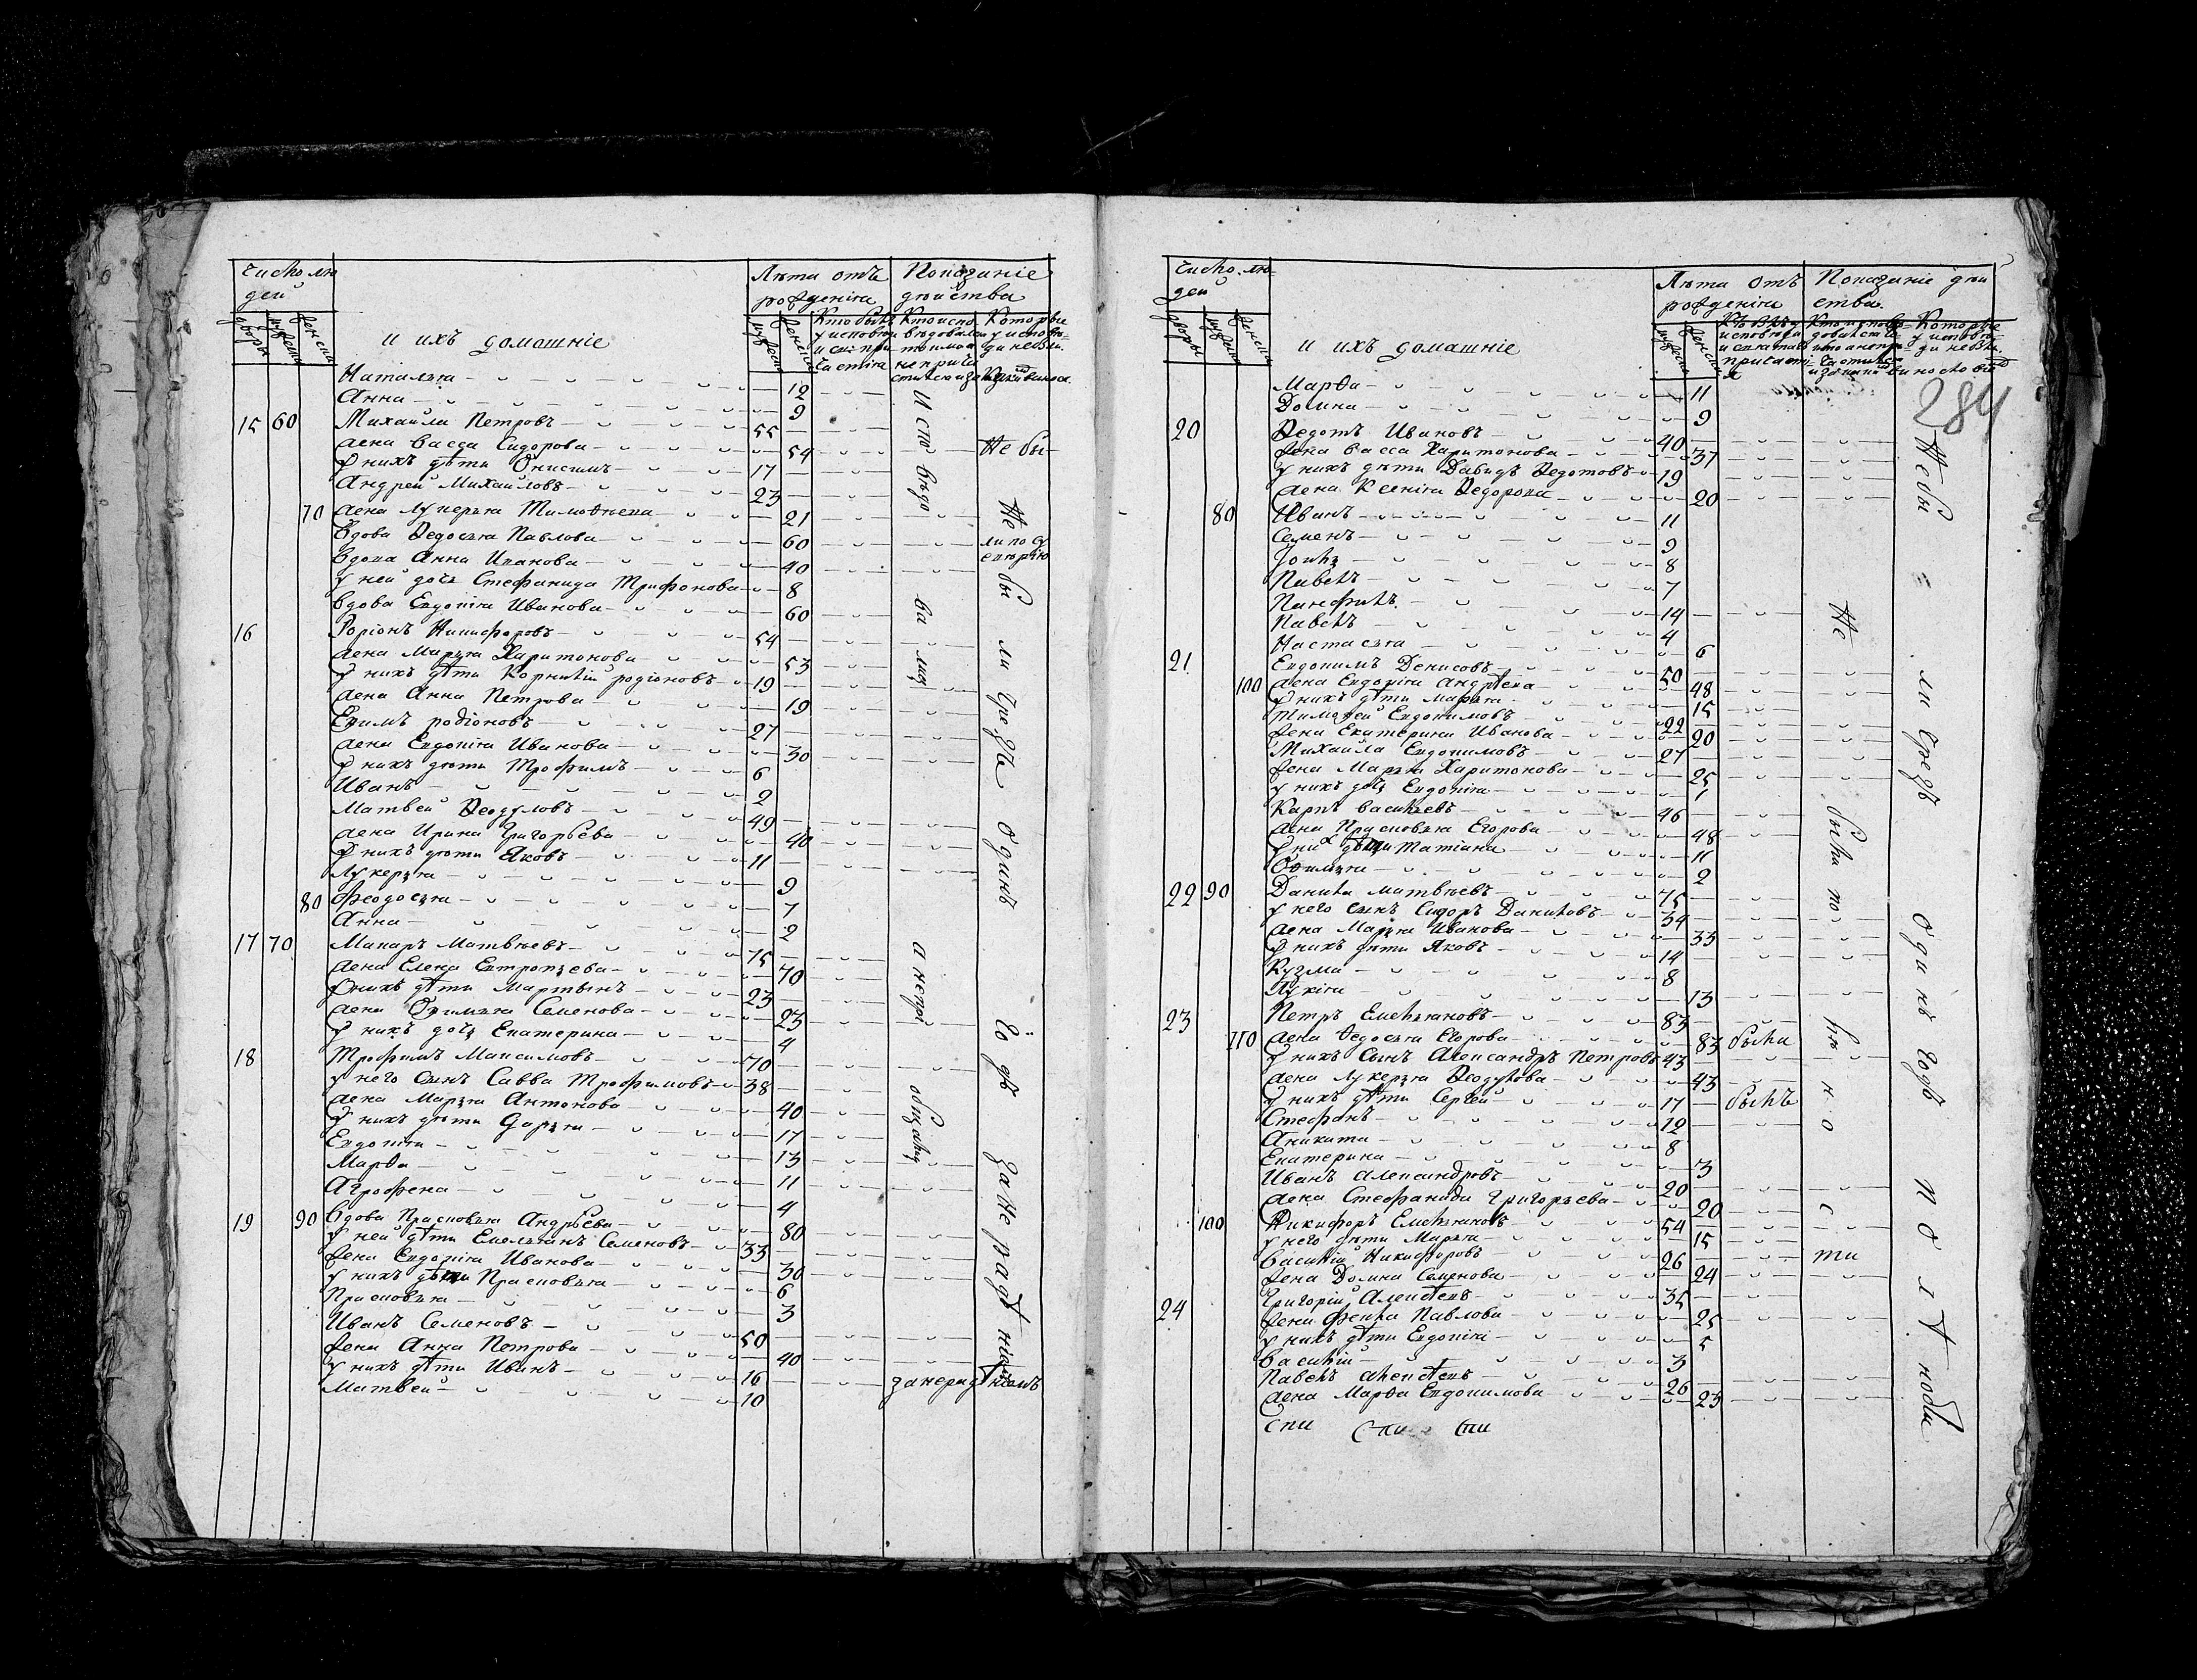 Число лю
дей
Лѣта отъ
рожденія
Показаніе
дѣйства
дворы
муж
женски
и ихъ домашніе
Наталья 12
Анна 9
15 60 Михаила Петровъ 55
жена Васса Сидорова 54
У нихъ дѣти Онисимъ 17
Андрей Михайловъ 23
70 жена Лукерья Тимоѳеева 21
Вдова Ѳедосья Павлова 60
Вдова Анна Иванова 40
у ней дочь Стефанида Трифонова 8
Вдова Евдокія Иванова 60
16 Родіонъ Никифоровъ 54
жена Марья Харитонова 53
У нихъ дѣти Корнилій родіоновъ 19
жена Анна Петрова 19
Ефимъ родіоновъ 27
жена Евдокія Иванова 30
У нихъ дѣти Трофимъ 6
Иванъ 2
Матвей Ѳеодуловъ 49
жена Ирина Григорьева 40
У нихъ дѣти Яковъ 11
Лукерья 9
80 Феодосья 7
Анна 2
17 70 Макаръ Матвѣевъ 75
жена Елена Евтропьева 70
У нихъ дѣти Мартынъ 23
жена Офимья Семенова 23
У нихъ дочь Екатерина 4
18 Трофимъ Максимовъ 70
у него сынъ Савва Трофимовъ 38
жена Марья Антонова 40
У нихъ дѣти Дарья 17
Евдокія 13
Марѳа 11
Агрофена 4
19 90 Вдова Прасковья Андрѣева 80
У ней дѣти Емельянъ Семеновъ 33
жена Евдокія Иванова 30
У нихъ дѣти Прасковья 6
Прасковья 3
Иванъ Семеновъ 50
жена Анна Петрова 40
У нихъ дѣти Иванъ 16
Матвей 10
Не бы
ли чрезъ одинъ годъ за нерадѣніемъ
Число лю-
дей
Лѣта отъ
рожденія
Показаніе дѣй
ства
дворы
муж
женски
и ихъ домашніе
284
Марѳа 11
Домна 9
20 Ѳедотъ Ивановъ 40
жена Васса Харитонова 37
У нихъ дѣти Давидъ Ѳедотовъ 19
жена Ксенія Ѳедорова 20
80 Иванъ 11
Семенъ 9
8
Павелъ 7
Панфилъ 14
Павелъ 4
Настасья 6
21 Евдокимъ Денисовъ 50
100 жена Евдокія Андрѣева 48
У нихъ дѣти Марья 15
Тимоѳей Евдокимовъ 22
жена Екатерина Иванова 20
Михаила Евдокимовъ 27
жена Марья Харитонова 25
у нихъ дочь Евдокія 1
Карпъ Васильевъ 46
жена Прасковья Егорова 48
У них дѣти Татіана 11
Офимья 2
22 90 Данила Матвѣевъ 75
у него сынъ Сидоръ Даниловъ 34
жена Марья Иванова 33
У нихъ дѣти Яковъ 14
Кузма 8
Лукія 13
23 Петръ Емельяновъ 83
110 жена Ѳедосья Егорова 83 были
У нихъ Сынъ Александръ Петровъ 43
жена Лукерья Ѳеодулова 43
У нихъ дѣти Сергей 17 былъ
Стефанъ 12
Аникита 8
Екатерина 3
Иванъ Александровъ 20
жена Стефанида Григорьева 20
100 Никифоръ Емельяновъ 54
у него дѣти Марья 15
Василій Никифоровъ 26
жена Домна Семенова 24
24 Григорій Алексѣевъ 35
жена Фекла Павлова 25
у нихъ дѣти Евдокія 5
Василій 3
Павелъ Алексѣевъ 26
жена Марѳа Евдокимова 23
Не были чрезъ одинъ годъ